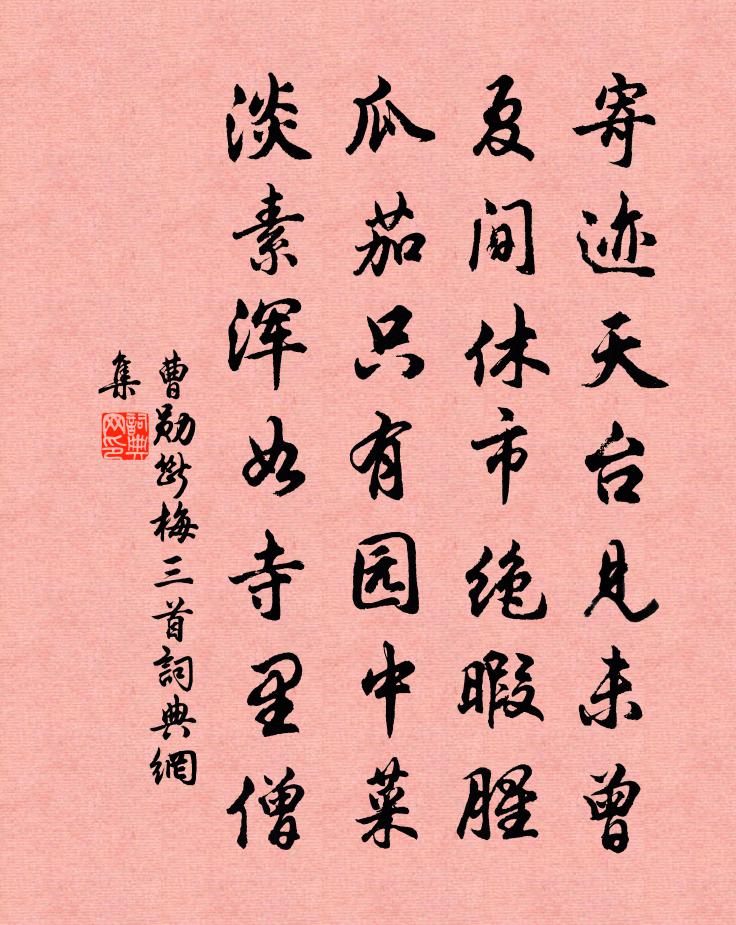 寄迹天台见未曾
夏间休市绝暇腥
瓜茄只有园中菜
淡素浑如寺里僧
曹勋断梅三首詞典網
集
詞典网印